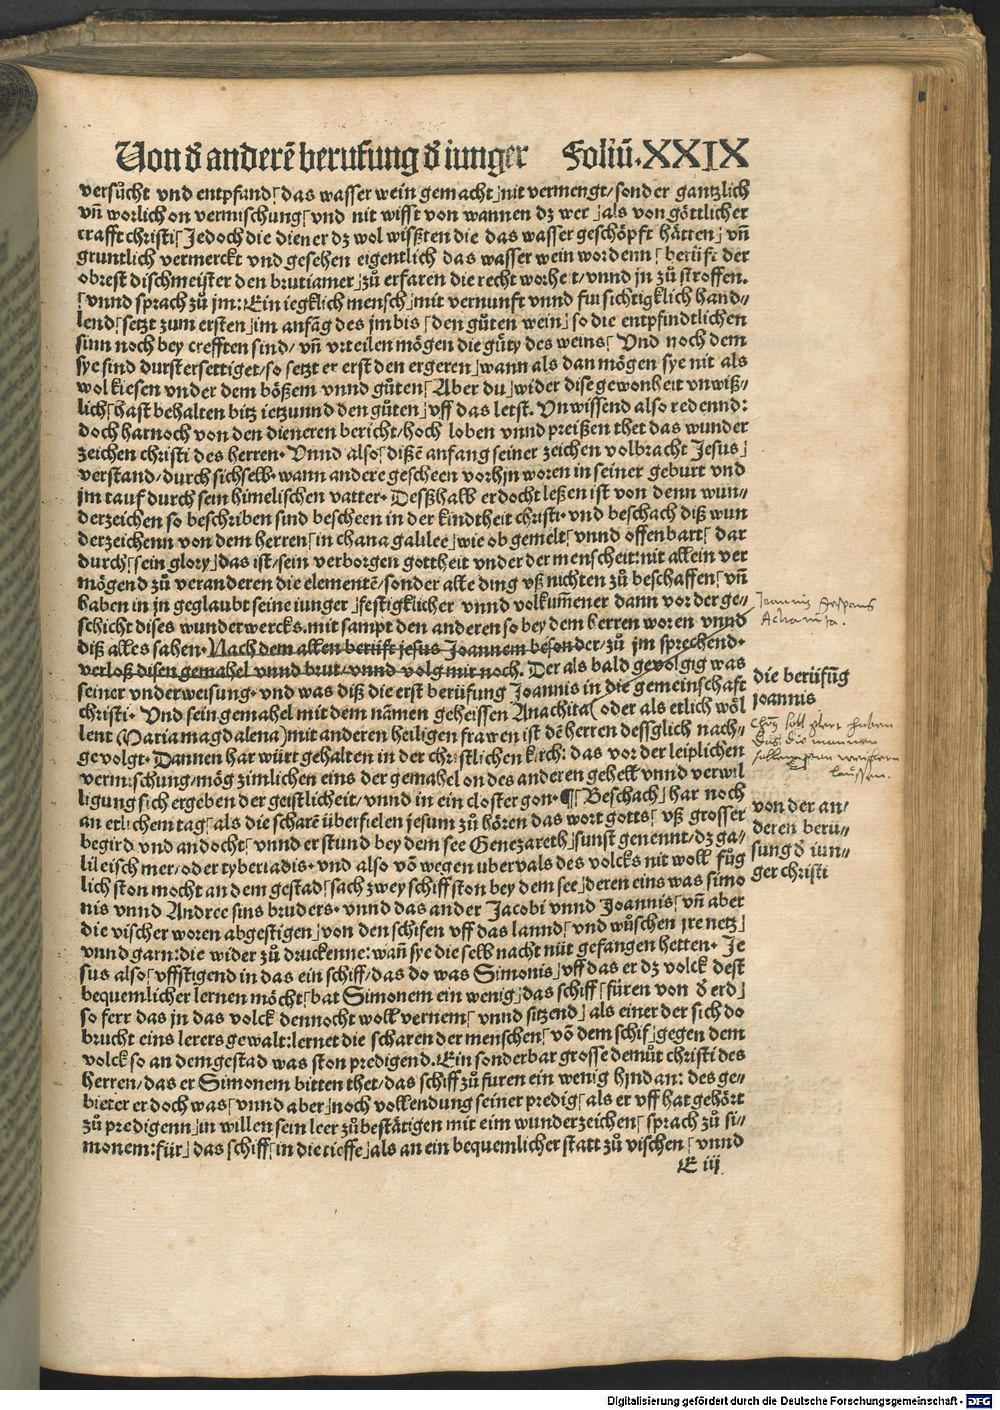 Von d̃ anderẽ berufung d̃ iunger Foliũ.XXIX
versůcht vnd entpfand⸢das wasser wein gemacht⸥nit vermengt/sonder gantzlich
vñ worlich on vermischung⸢vnd nit wisst von wannen dz wer⸥als von göttlicher
crafft christi⸢Jedoch die diener dz wol wissʒten die das wasser geschöpft hätten⸥vñ
gruntlich vermerckt vnd gesehen eigentlich das wasser wein wordenn⸢berüft der
obrest dischmeister den brutiamer⸥zů erfaren die recht worheit/vnnd jn zů stroffen.
⸢vnnd sprach zů jm:Ein iegklich mensch⸥mit vernunft vnnd fursichtigklich hand⸗
lend⸢setzt zum ersten⸥im anfãg des jmbis⸢den gůten wein⸥so die entpfindtlichen
sinn noch bey crefften sind/vñ vrteilen mögen die gůty des weins⸢Vnd noch dem
sye sind durstersettiget/so setzt er erst den ergeren⸥wann als dan mögen sye nit als
wol kiesen vnder dem bößem vnnd gůten⸢Aber du⸥wider dise gewonheit vnwiß⸗
lich⸢hast behalten bitz ietzunnd den gůten⸥vff das letst. Vnwissend also redennd:
doch harnoch von den dieneren bericht/hoch loben vnnd preißen thet das wunder
zeichen christi des herren. Vnnd also⸢dißẽ anfang seiner zeichen volbracht Jesus⸥
verstand/durch sichselb. wann andere gescheen vorhjn woren in seiner geburt vnd
jm tauf durch sein himelischen vatter. Desßhalb erdocht leßen ist von denn wun⸗
derzeichen so beschriben sind bescheen in der kindtheit christi. vnd beschach diß wun
derzeichenn von dem herren⸢in chana galilee⸥wie ob gemelt⸢vnnd offenbart⸢dar
durch⸢sein glory⸥das ist/sein verborgen gottheit vnder der menscheit:nit allein ver
mögend zů veranderen die elementẽ/sonder alle ding vß nichten zů beschaffen⸢vñ
haben in jn geglaubt seine iunger⸥festigklicher vnnd volkum̃ener dann vor der ge⸗
schicht dises wunderwercks.mit sampt den anderen so bey dem herren woren vnnd
diß alles sahen. Nach dem allen berüft jesus Joannem besonder/zů jm sprechend.
verloß disen gemahel vnnd brut/vnnd volg mir noch. Der als bald gevolgig was
seiner vnderweisung. vnd was diß die erst berüfung Joannis in die gemeinschaft
christi. Vnd sein gemahel mit dem nãmen geheissen Anachita(oder als etlich wöl
lent(Mariamagdalena)mit anderen heiligen frawen ist dẽ herren dessglich nach⸗
gevolgt. Dannen har würt gehalten in der christlichen kirch: das vor der leiplichen
vermischung/mög zimlichen eins der gemahel on des anderen gehell vnnd verwil
ligung sich ergeben der geistlicheit/vnnd in ein closter gon. ¶ ⸢Beschach⸥har noch
an etlichem tag⸢als die scharẽ überfielen jesum zů hören das wort gotts⸢vß grosser
begird vnd andocht⸢vnnd er stund bey dem see Genezareth⸥sunst genennt/dz ga⸗
lileisch mer/oder tyberiadis. vnd also võ wegen ubervals des volcks nit woll fůg
lich ston mocht an dem gestad⸢sach zwey schiff ston bey dem see⸥deren eins was simo
nis vnnd Andree sins bruders. vnnd das ander Jacobi vnnd Joannis⸢vñ aber
die vischer woren abgestigen⸥von den schifen vff das lannd⸢vnd wůschen jre netz⸥
vnnd garn:die wider zů druckenne:wañ sye die selb nacht nüt gefangen hetten. Je
sus also⸢vffstigend in das ein schiff/das do was Simonis⸥vff das er dz volck dest
bequemlicher lernen möcht⸢bat Simonem ein wenig⸥das schiff⸢füren von d̃ erd⸥
so ferr das jn das volck dennocht woll vernem⸢vnnd sitzend⸥als einer der sich do
brucht eins lerers gewalt:lernet die scharen der menschen⸢võ dem schif⸥gegen dem
volck so an dem gestad was ston predigend.Ein sonderbar grosse demůt christi des
herren/das er Simonem bitten thet/das schiff zů furen ein wenig hjndan: des ge⸗
bieter er doch was⸢vnnd aber⸥noch vollendung seiner predig⸢als er vff hat gehört
zů predigenn⸥in willen sein leer zůbestätigen mit eim wunderzeichen⸢sprach zů si⸗
monem:für⸥das schiff⸢in die tieffe⸥als an ein bequemlicher statt zů vischen⸢vnnd
E iij
Joannis
die berüfũg
joannis
von der an⸗
deren berü⸗
fung d̃ iun⸗
ger christi
Digitalisierung gefördert durch die Deutsche Forschungsgemeinschaft - DFG